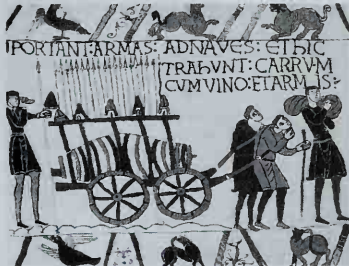 PORTANT:ARMAS: ADNAVES: EThIC
TRAhUNT: CARRUM
CUM VINO: ETARMIS: